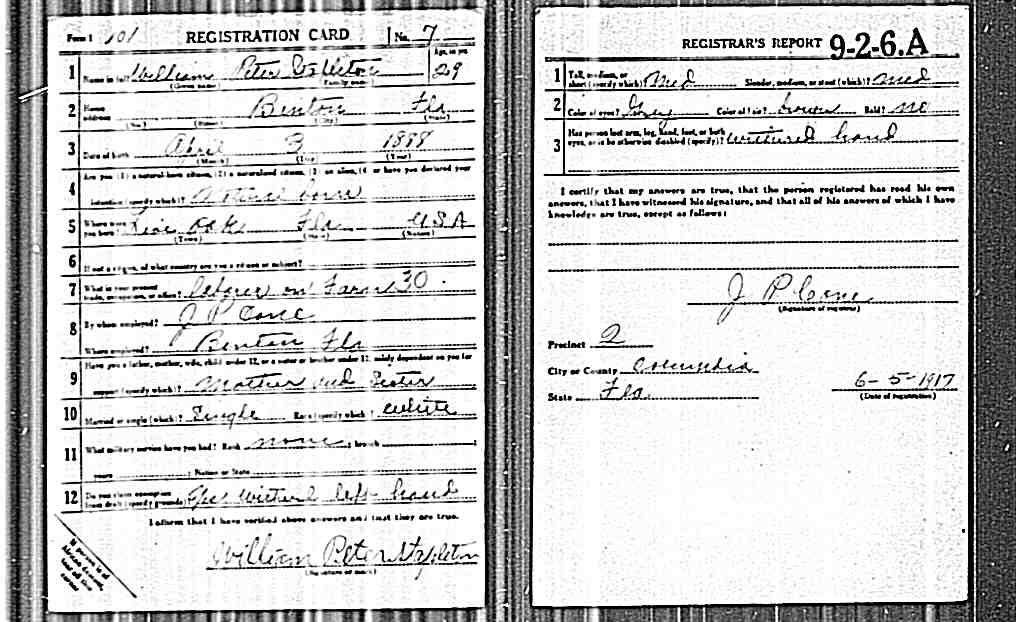 Form 1 101 REGISTRATION CARD No. 7
Age, in yrs.
1 Name in full William Peter Stapleton 29
(Given name) (Family name)
2 Home address Benton Fla
(No.) (Street) (City) (State)
3 Date of birth April 3 1888
(Month) (Day) (Year)
Are you (1) a natural-born citizen, (2) a naturalized citizen, (3) an alien, (4) or have you declared your
4 intention (specify which)? born
5 Where were you born? Live Oak Fla USA
(Town) (State) (Nation)
6 If not a citizen, of what country are you a citizen or subject?
7 What is your present trade, occupation, or office? laborer on Farm 30
8 By whom employed? J P Cone
Where employed? Benton Fla
Have you a father, mother, wife, child under 12, or a sister or brother under 12, solely dependent on you for
9 support (specify which)? Mother and Sister
10 Married or single (which)? Single Race (specify which)? White
11 What military service have you had? Rank none ; branch ;
years ; Nation or State
12 Do you claim exemption from draft (specify grounds)? Yes left hand
I affirm that I have verified above answers and that they are true.
William Peter Stapleton
(Signature or mark)
If person is of
African descent,
tear off this
corner
REGISTRAR'S REPORT 9-2-6.A
1 Tall, medium, or short (specify which)? Med Slender, medium, or stout (which)? Med
2 Color of eyes? Grey Color of hair? brown Bald? no
3 Has person lost arm, leg, hand, foot, or both
eyes, or is he otherwise disabled (specify)? hand
I certify that my answers are true, that the person registered has read his own
answers, that I have witnessed his signature, and that all of his answers of which I have
knowledge are true, except as follows:
J P Cone
(Signature of registrar)
Precinct 2
City or County Columbia
State Fla 6-5-1917
(Date of registration)